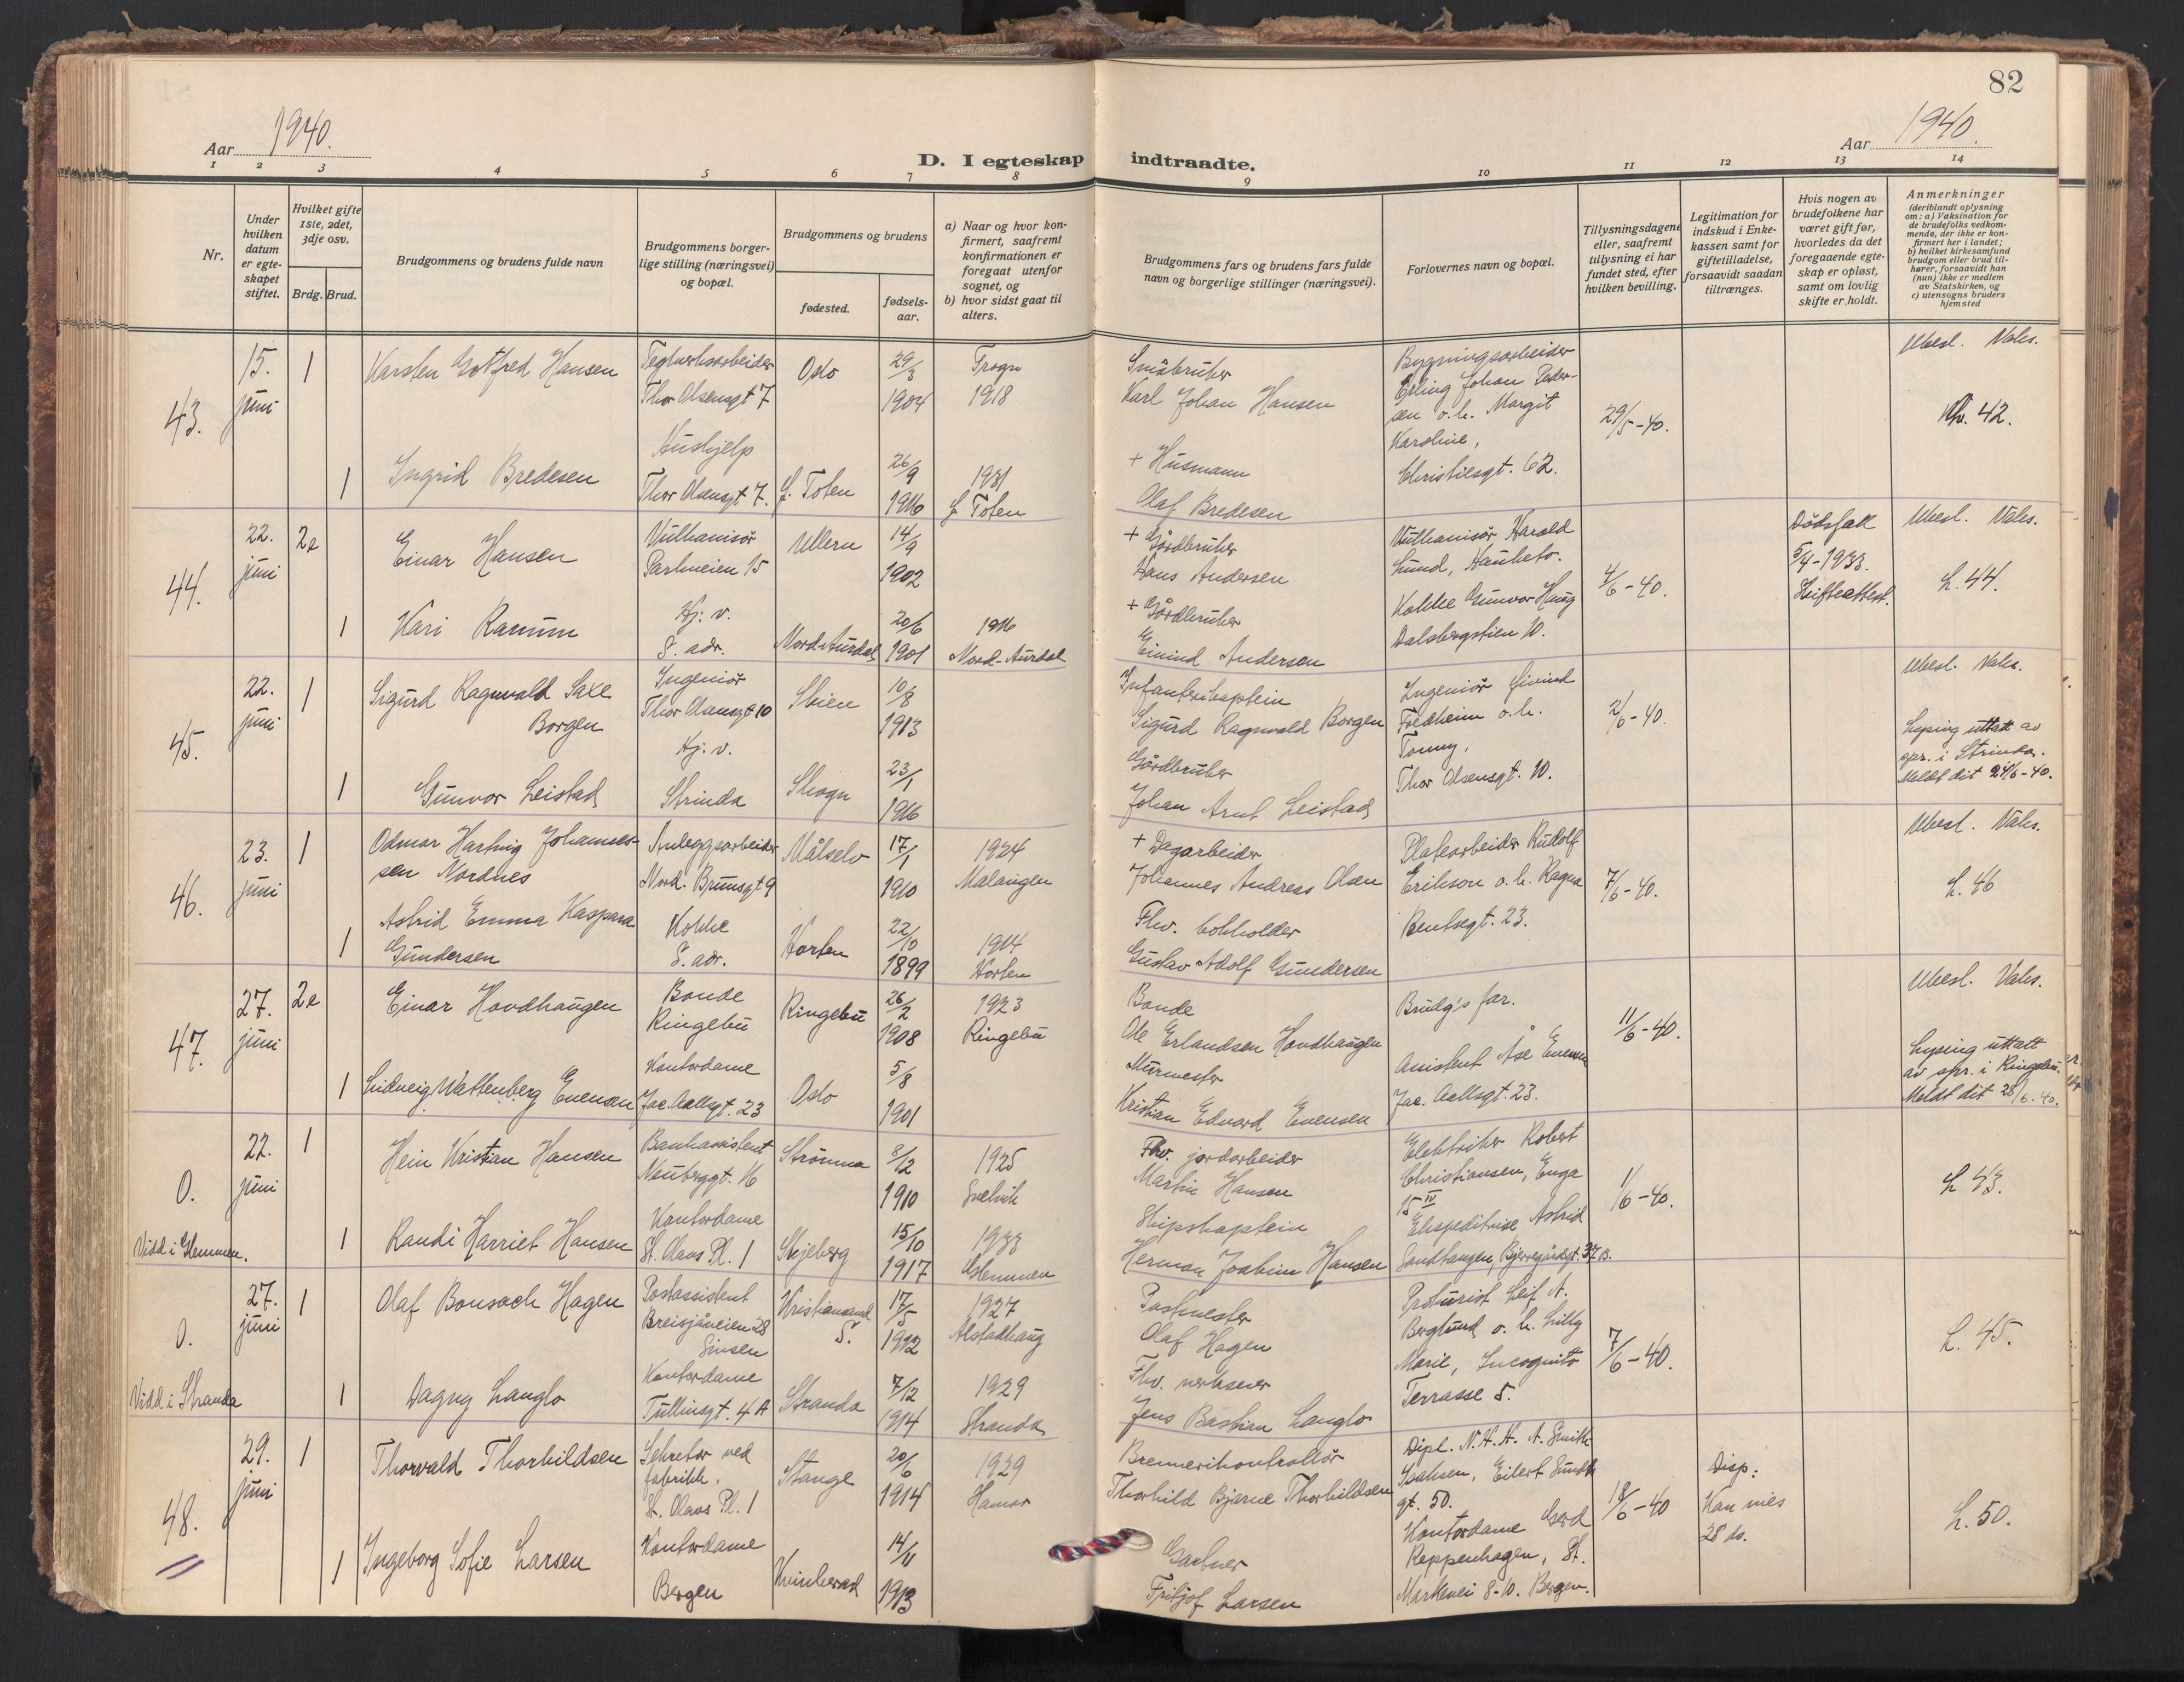 82
Aar 1940.
Aar 1940.
D. I egteskap indtraadte.
1 2 3 4 5 6 7 8 9 10 11 12 13 14
Nr.
Under hvilken datum er egte-skapet stiftet.
Hvilket gifte 1ste, 2det, 3dje osv.
Brdg. Brud.
Brudgommens og brudens fulde navn
Brudgommens borger-lige stilling (næringsvei) og bopæl.
Brudgommens og brudens
fødested.
fødsels-aar.
a) Naar og hvor kon-firmert, saafremt konfirmationen er foregaat utenfor sognet, og
b) hvor sidst gaat til alters.
Brudgommens fars og brudens fars fulde navn og borgerlige stillinger (næringsvei).
Forlovernes navn og bopæl.
Tillysningsdagene eller, saafremt tillysning ei har fundet sted, efter hvilken bevilling.
Legitimation for indskud i Enke-kassen samt for giftetilladelse, forsaavidt saadan tiltrænges.
Hvis nogen av brudefolkene har været gift før, hvorledes da det foregaaende egte-skap er opløst, samt om lovlig skifte er holdt.
Anmerkninger (deriblandt oplysning om: a) Vaksination for de brudefolks vedkom-mende, der ikke er kon-firmert her i landet; b) hvilket kirkesamfund brudgom eller brud til-hører, forsaavidt han (hun) ikke er medlem av Statskirken, og c) utensogns bruders hjemsted
43.
15. juni
1
Karsten Gotfred Hansen
Teglverksarbeider
Thor Olsensgt 7
Oslo
29/3 1904
Frogn 1918
Småbruker
Karl Johan Hansen
Bygningsarbeider
Erling Johan Peder-
sen o.h. Margit
Karoline,
Christiesgt. 62.
29/5-40.
Ubesl. Vaks.
42.
1
Ingrid Bredesen
Hushjelp
Thor Olsensgt 7.
Toten
26/9 1916
1931
Toten
+ Husmann
Olaf Bredesen
44.
22. juni
2e
Einar Hansen
Vulkanisør
Parkveien 15
Ullern
14/9 1902
+ Gårdbruker
Hans Andersen
Vulkanisør Harald
Lund, Hauketo.
Kokke Gunvor Haug
Dalsbergstien 10.
4/6-40.
Dødsfall
5/4-1933.
Skifteattest.
Ubesl. Vaks.
L. 44.
1
Kari Ranum
Hj. v.
S. adr.
Nord-Aurdal
20/6 1901
1916
Nord-Aurdal
+ Gårdbruker
Eivind Andersen
45.
22. juni
1
Sigurd Ragnvald Saxe
Borgen
Ingeniør
Thor Olsensgt 10
Skien
10/8 1913
Infanterikaptein
Sigurd Ragnvald Borgen
Ingeniør Eivind
Fredheim o.h.
Tonny,
Thor Olsensgt. 10.
2/6-40.
Ubesl. Vaks.
Lysing uttatt av
spr. i Strinda.
Meldt dit 24/6-40.
1
Gunvor Leistad
Hj. v.
Strinda
Skogn
23/1 1916
Gårdbruker
Johan Arnt Leistad
46.
23. juni
1
Odmar Hartvig Johannes-
sen Nordnes
Anleggsarbeider
Nord. Brunsgt 9
Målselv
17/1 1910
1924
Malangen
+ Dagarbeider
Johannes Andreas Olsen
Platearbeider Rudolf
Erikson o.h. Ragna
Bentsegt. 23.
7/6-40.
Ubesl. Vaks.
L. 46
1
Astrid Emma Kaspara
Gundersen
Kokke
S. adr.
Horten
22/10 1899
1914
Horten
Fhv. bokholder
Gustav Adolf Gundersen
47.
27. juni
2e
Einar Hovdhaugen
Bonde
Ringebu
Ringebu
26/2 1908
1923
Ringebu
Bonde
Ole Erlandsen Hovdhaugen
Brudg's far.
Assistent Åse Evensen
Jac. Aallsgt. 23.
11/6-40.
Ubesl. Vaks.
Lysing uttatt
av spr. i Ringebu.
Meldt dit 28/6.40.
1
Lidveig Wattenberg Evensen
Kontordame
Jac. Aallsgt. 23
Oslo
5/8 1901
Murmester
Kristian Edvard Evensen
0.
Vidd i Glemmen.
22. juni
1
Hein Kristian Hansen
Bankassistent
Neuberggt. 16
Strømm
8/12 1910
1925
Svelvik
Fhv. jordarbeider
Martin Hansen
Elektriker Robert
Christiansen, Enga
15 IV
Ekspeditrise Astrid
Sandhaugen, Bjerregårdsgt. 37 B.
1/6-40.
L 43.
1
Randi Harriet Hansen
Kontordame
St. Olavs Pl. 1
Skjeberg
15/10 1917
1933
Glemmen
Skipskaptein
Herman Joakim Hansen
0.
Vidd i Stranda
27. juni
1
Olaf Bonsach Hagen
Postassistent
Breisjåveien 28
Sinsen
Kristiansand S.
17/5 1912
1927
Alstadhaug
Postmester
Olaf Hagen
Prokurist Leif A.
Berglund o.h. Lilly
Marie, Incognito
Terrasse 5.
7/6-40.
L. 45.
1
Dagny Langlo
Kontordame
Tullinsgt. 4 A
Stranda
7/12 1914
1929
Stranda
Fhv. verkseier
Jens Bastian Langlo
48.
29. juni
1
Thorvald Thorkildsen
Sekretær ved
fabrikk.
St. Olavs Pl. 1
Stange
20/6 1914
1929
Hamar
Brennerikontrollør
Thorkild Bjarne Thorkildsen
Dipl. N.H.H. A. Smith
Isaksen, Eilert Sundts
gt. 50.
Kontordame Gerd
Reppenhagen, St.
Markevei 8-10. Bergen.
18/6-40
Disp:
Kan vies
28 ds.
L. 50.
1
Ingeborg Sofie Larsen
Kontordame
Bergen
Kvinherad
14/11 1913
Gartner
Fritjof Larsen